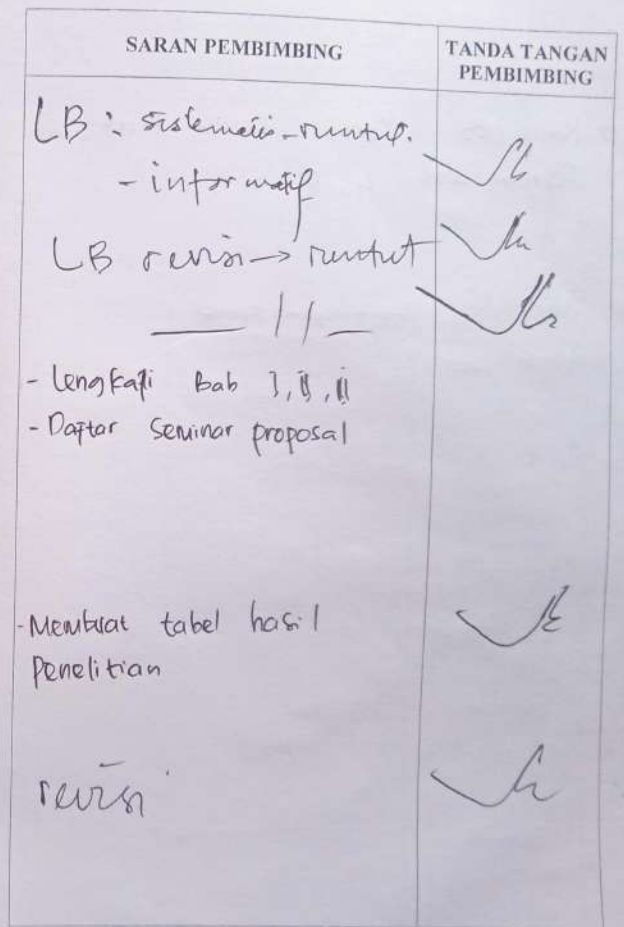 SARAN PEMBIMBING
TANDA TANGAN
PEMBIMBING
LB : sistematis - runtut.
- informatif
LB revisi → runtut
— 11 —
- Lengkapi Bab I, II, III
- Daftar Seminar proposal
- Membuat tabel hasil
Penelitian
revisi